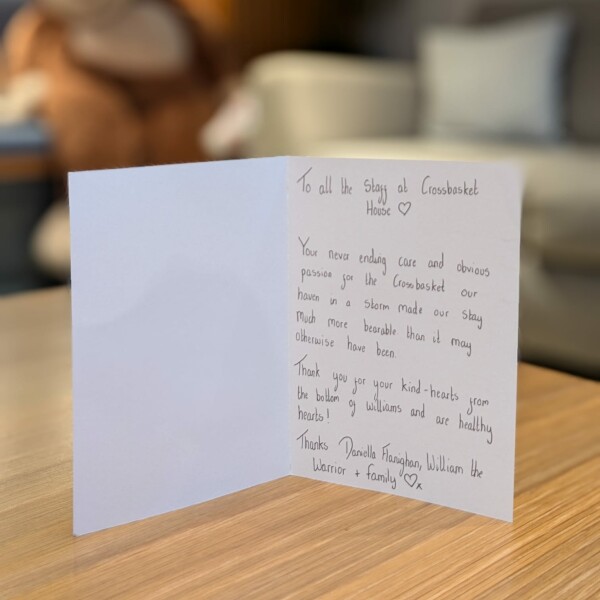 To all the Staff at Crossbasket
House ♡
Your never ending care and obvious
passion for the Crossbasket our
haven in a storm made our stay
much more bearable than it may
otherwise have been.
Thank you for your kind-hearts from
the bottom of Williams and are healthy
hearts!
Thanks Daniella Flanighan, William the
Warrior + family ♡x